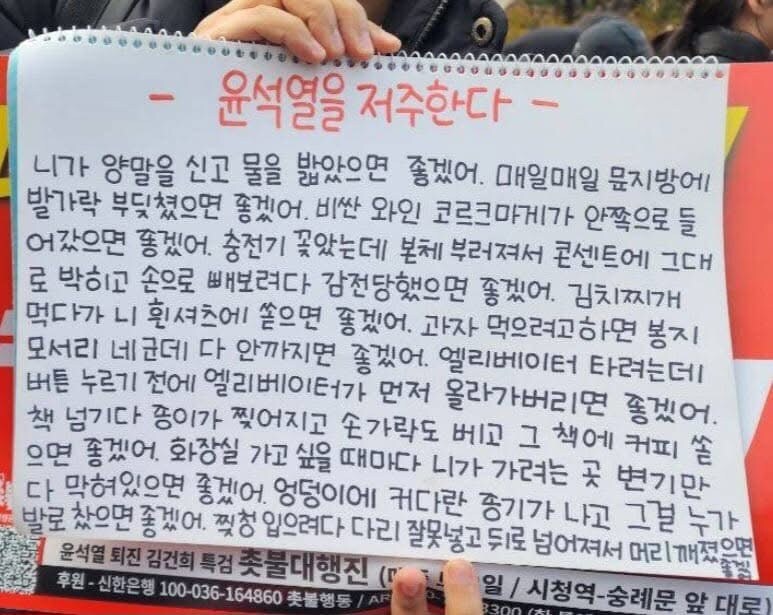 - 윤석열을 저주한다 -
니가 양말을 신고 물을 밟았으면 좋겠어. 매일매일 문지방에
발가락 부딪쳤으면 좋겠어. 비싼 와인 코르크마게가 안쪽으로 들
어갔으면 좋겠어. 충전기 꽂았는데 본체 부러져서 콘센트에 그대
로 박히고 손으로 빼보려다 감전당했으면 좋겠어. 김치찌개
먹다가 니 흰셔츠에 쏟으면 좋겠어. 과자 먹으려고하면 봉지
모서리 네군데 다 안까지면 좋겠어. 엘리베이터 타려는데
버튼 누르기 전에 엘리베이터가 먼저 올라가버리면 좋겠어.
책 넘기다 종이가 찢어지고 손가락도 베고 그 책에 커피 쏟
으면 좋겠어. 화장실 가고 싶을 때마다 니가 가려는 곳 변기만
다 막혀있으면 좋겠어. 엉덩이에 커다란 종기가 나고 그걸 누가
발로 찼으면 좋겠어. 찢청 입으려다 다리 잘못넣고 뒤로 넘어져서 머리 깨졌으면
좋겠어
윤석열 퇴진 김건희 특검 촛불대행진 (매 일 / 시청역-숭례문 앞 대로)
후원 - 신한은행 100-036-164860 촛불행동 / AR 3300